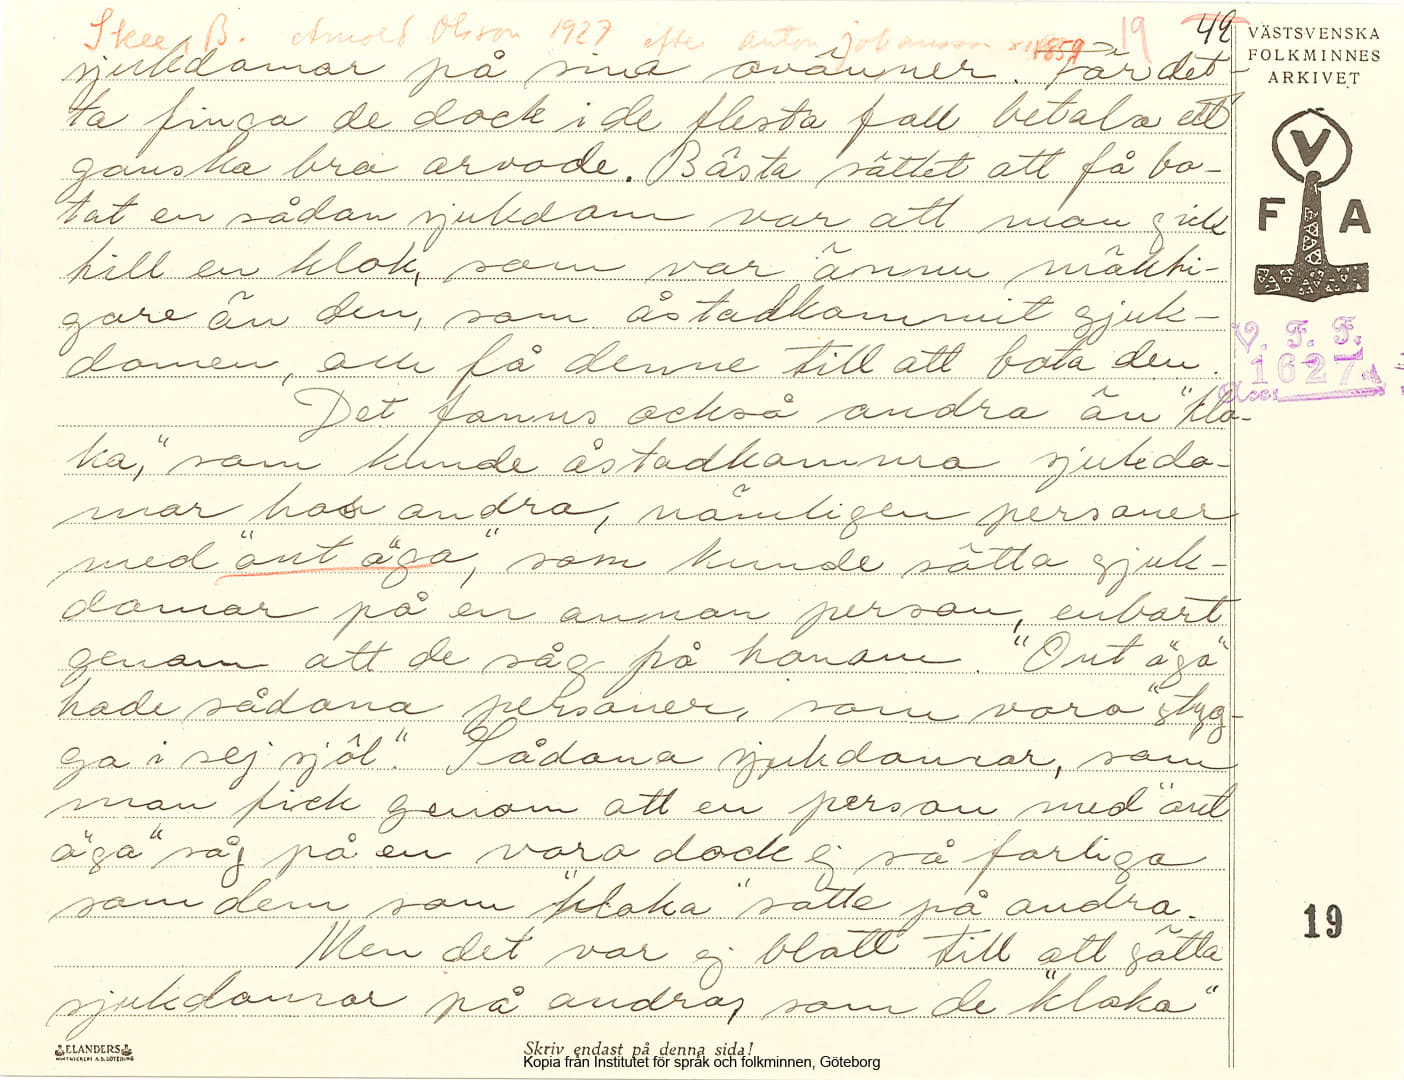 Skee, B. Arnold Olsson 1927 efter Anton Johansson 1859 19 42
VÄSTSVENSKA
FOLKMINNES
ARKIVET
V
F A
V. F. F.
1627
Acc:
sjukdomar på sina ovänner. För det-
ta finga de dock i de flesta fall betala ett
ganska bra arvode. Bästa sättet att få bo-
tat en sådan sjukdom var att man gick
till en klok, som var ännu mäkti-
gare än den, som åstadkommit sjuk-
domen, och få denne till att bota den.
Det fanns också andra än "klo-
ka," som kunde åstadkomma sjukdo-
mar hos andra, nämligen personer
med "ont öga," som kunde sätta sjuk-
domar på en annan person, enbart
genom att de såg på honom. "Ont öga"
hade sådana personer, som voro "styg-
ga i sej sjöl". Sådana sjukdomar, som
man fick genom att en person med "ont
öga" såg på en voro dock ej så farliga
som dem som "kloka" satte på andra.
Men det var ej blott till att sätta
sjukdomar på andra, som de "kloka"
19
ELANDERS
Skriv endast på denna sida!
Kopia från Institutet för språk och folkminnen, Göteborg